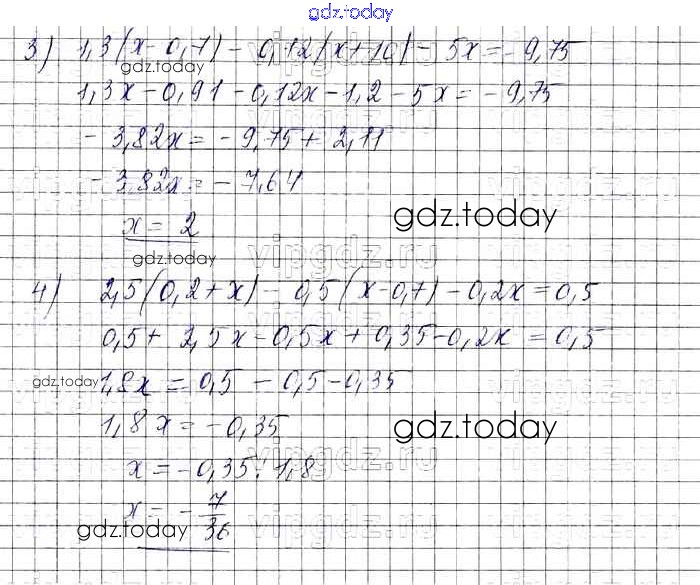 gdz.today
3) 1,3(x-0,7) - 0,12(x+10) - 5x = -9,75
gdz.today
1,3x - 0,91 - 0,12x - 1,2 - 5x = -9,75
- 3,82x = -9,75 + 2,11
- 3,82x = -7,64
gdz.today
x = 2
gdz.today
vipgdz.ru
4) 2,5(0,2+x) - 0,5(x-0,7) - 0,2x = 0,5
0,5 + 2,5x - 0,5x + 0,35 - 0,2x = 0,5
gdz.today
1,8x = 0,5 - 0,5 - 0,35
1,8x = -0,35
gdz.today
vipgdz.ru
x = -0,35 : 1,8
x = - 7/36
gdz.today